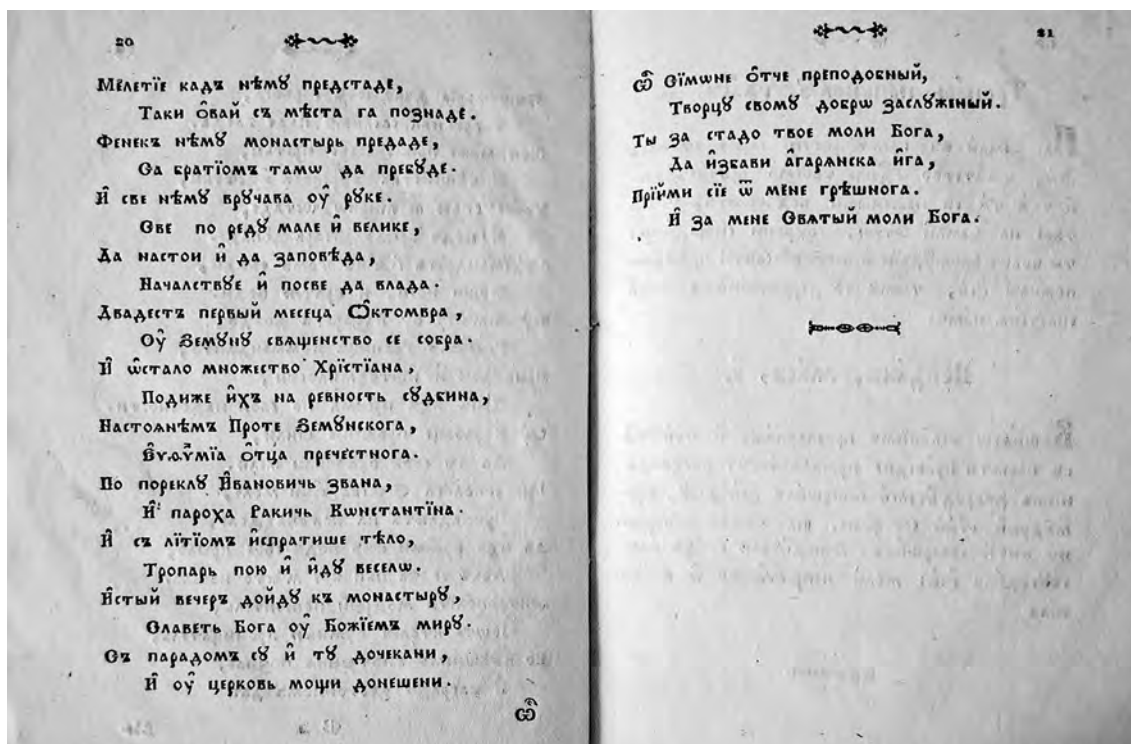 20
Мелетїе кадъ нѣмꙋ предстаде,
Таки ѻ҆вай съ мѣста га познаде.
Фенекъ нѣмꙋ монастырь предаде,
Са братїомъ тамѡ да пребꙋде.
И҆ све нѣмꙋ врꙋчава оу҆ рꙋке.
Све по редꙋ мале и҆ велике,
Да настои и҆ да заповѣда,
Началствꙋе и҆ посве да влада.
Двадестъ первый месеца Ѻ҆ктомвра,
Оу҆ Земꙋнꙋ свѧщенство се собра.
И҆ ѡ҆стало множество Хрїстїана,
Подиже и҆хъ на ревность сꙋдбина,
Настоѧнѣмъ Проте Земꙋнскога,
Е҆ѵѳѵ́мїа ѻ҆тца пречестнога.
По пореклꙋ И҆вановичь звана,
И҆ пароха Ракичь Кѡнстантїна.
И҆ съ лїтїомъ и҆спратише тѣло,
Тропарь пою и҆ и҆дꙋ веселѡ.
И҆стый вечеръ дойдꙋ къ монастырꙋ,
Славеть Бога оу҆ Божїемъ мирꙋ.
Съ парадомъ сꙋ и҆ тꙋ дочекани,
И҆ оу҆ церковь мощи донешени.
Ѽ
21
Ѽ Сїмѡне ѻ҆тче преподобный,
Творцꙋ свомꙋ добрѡ заслꙋженый.
Ты за стадо твое моли Бога,
Да и҆збави а҆гарѧнска и҆га,
Прїйми сїе ѿ мене грѣшнога.
И҆ за мене Свѧтый моли Бога.